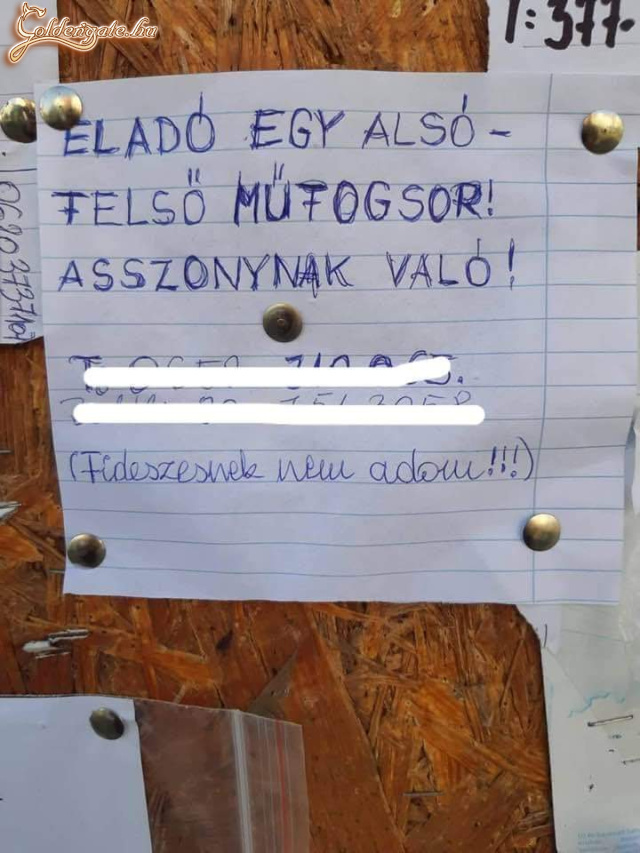 Goldengate.hu
1:377-
ELADÓ EGY ALSÓ-
FELSŐ MŰFOGSOR!
ASSZONYNAK VALÓ!
(Fideszesnek nem adom!!!)